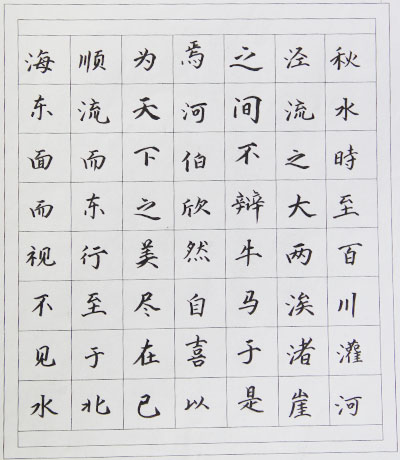 秋水時至百川灌河
泾流之大两涘渚崖
之间不辩牛马于是
焉河伯欣然自喜以
为天下之美尽在已
顺流而东行至于北
海东面而视不见水